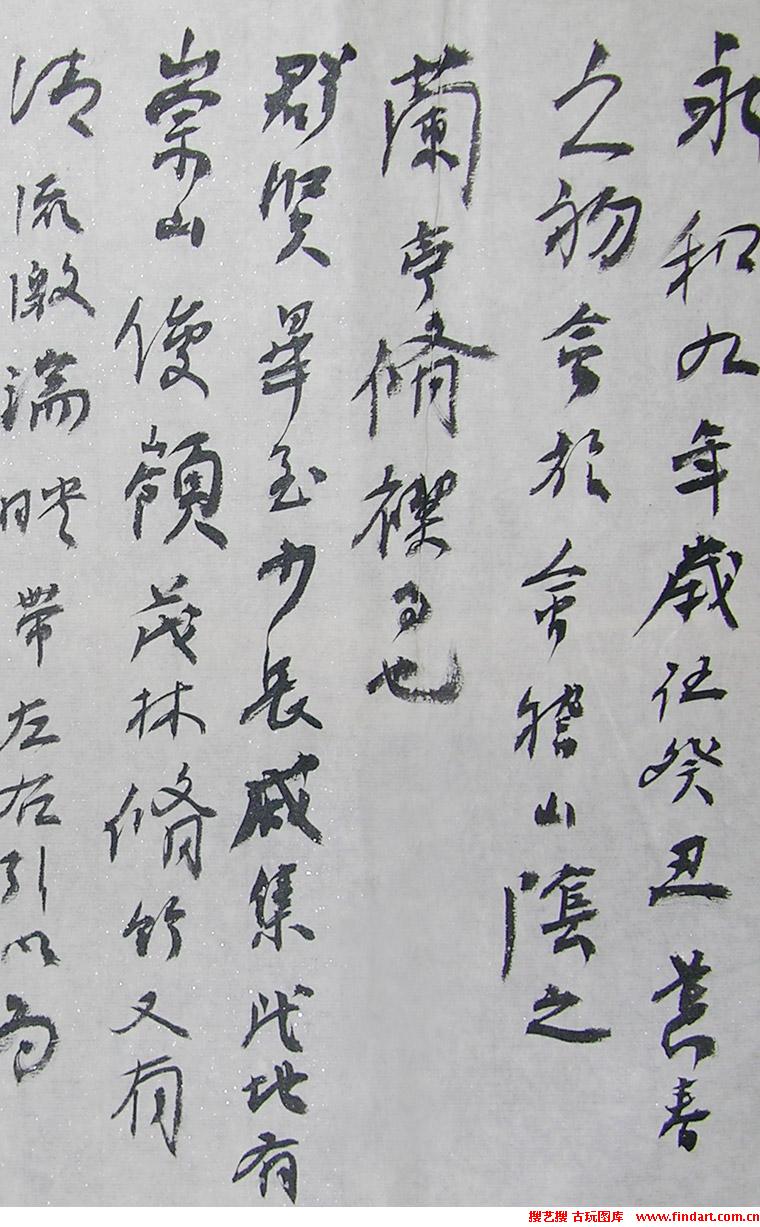 永和九年歲在癸丑暮春
之初會於會稽山陰之
蘭亭脩禊事也
群賢畢至少長咸集此地有
崇山俊嶺茂林脩竹又有
清流激湍映帶左右引以為
搜艺搜 古玩图库 www.findart.com.cn